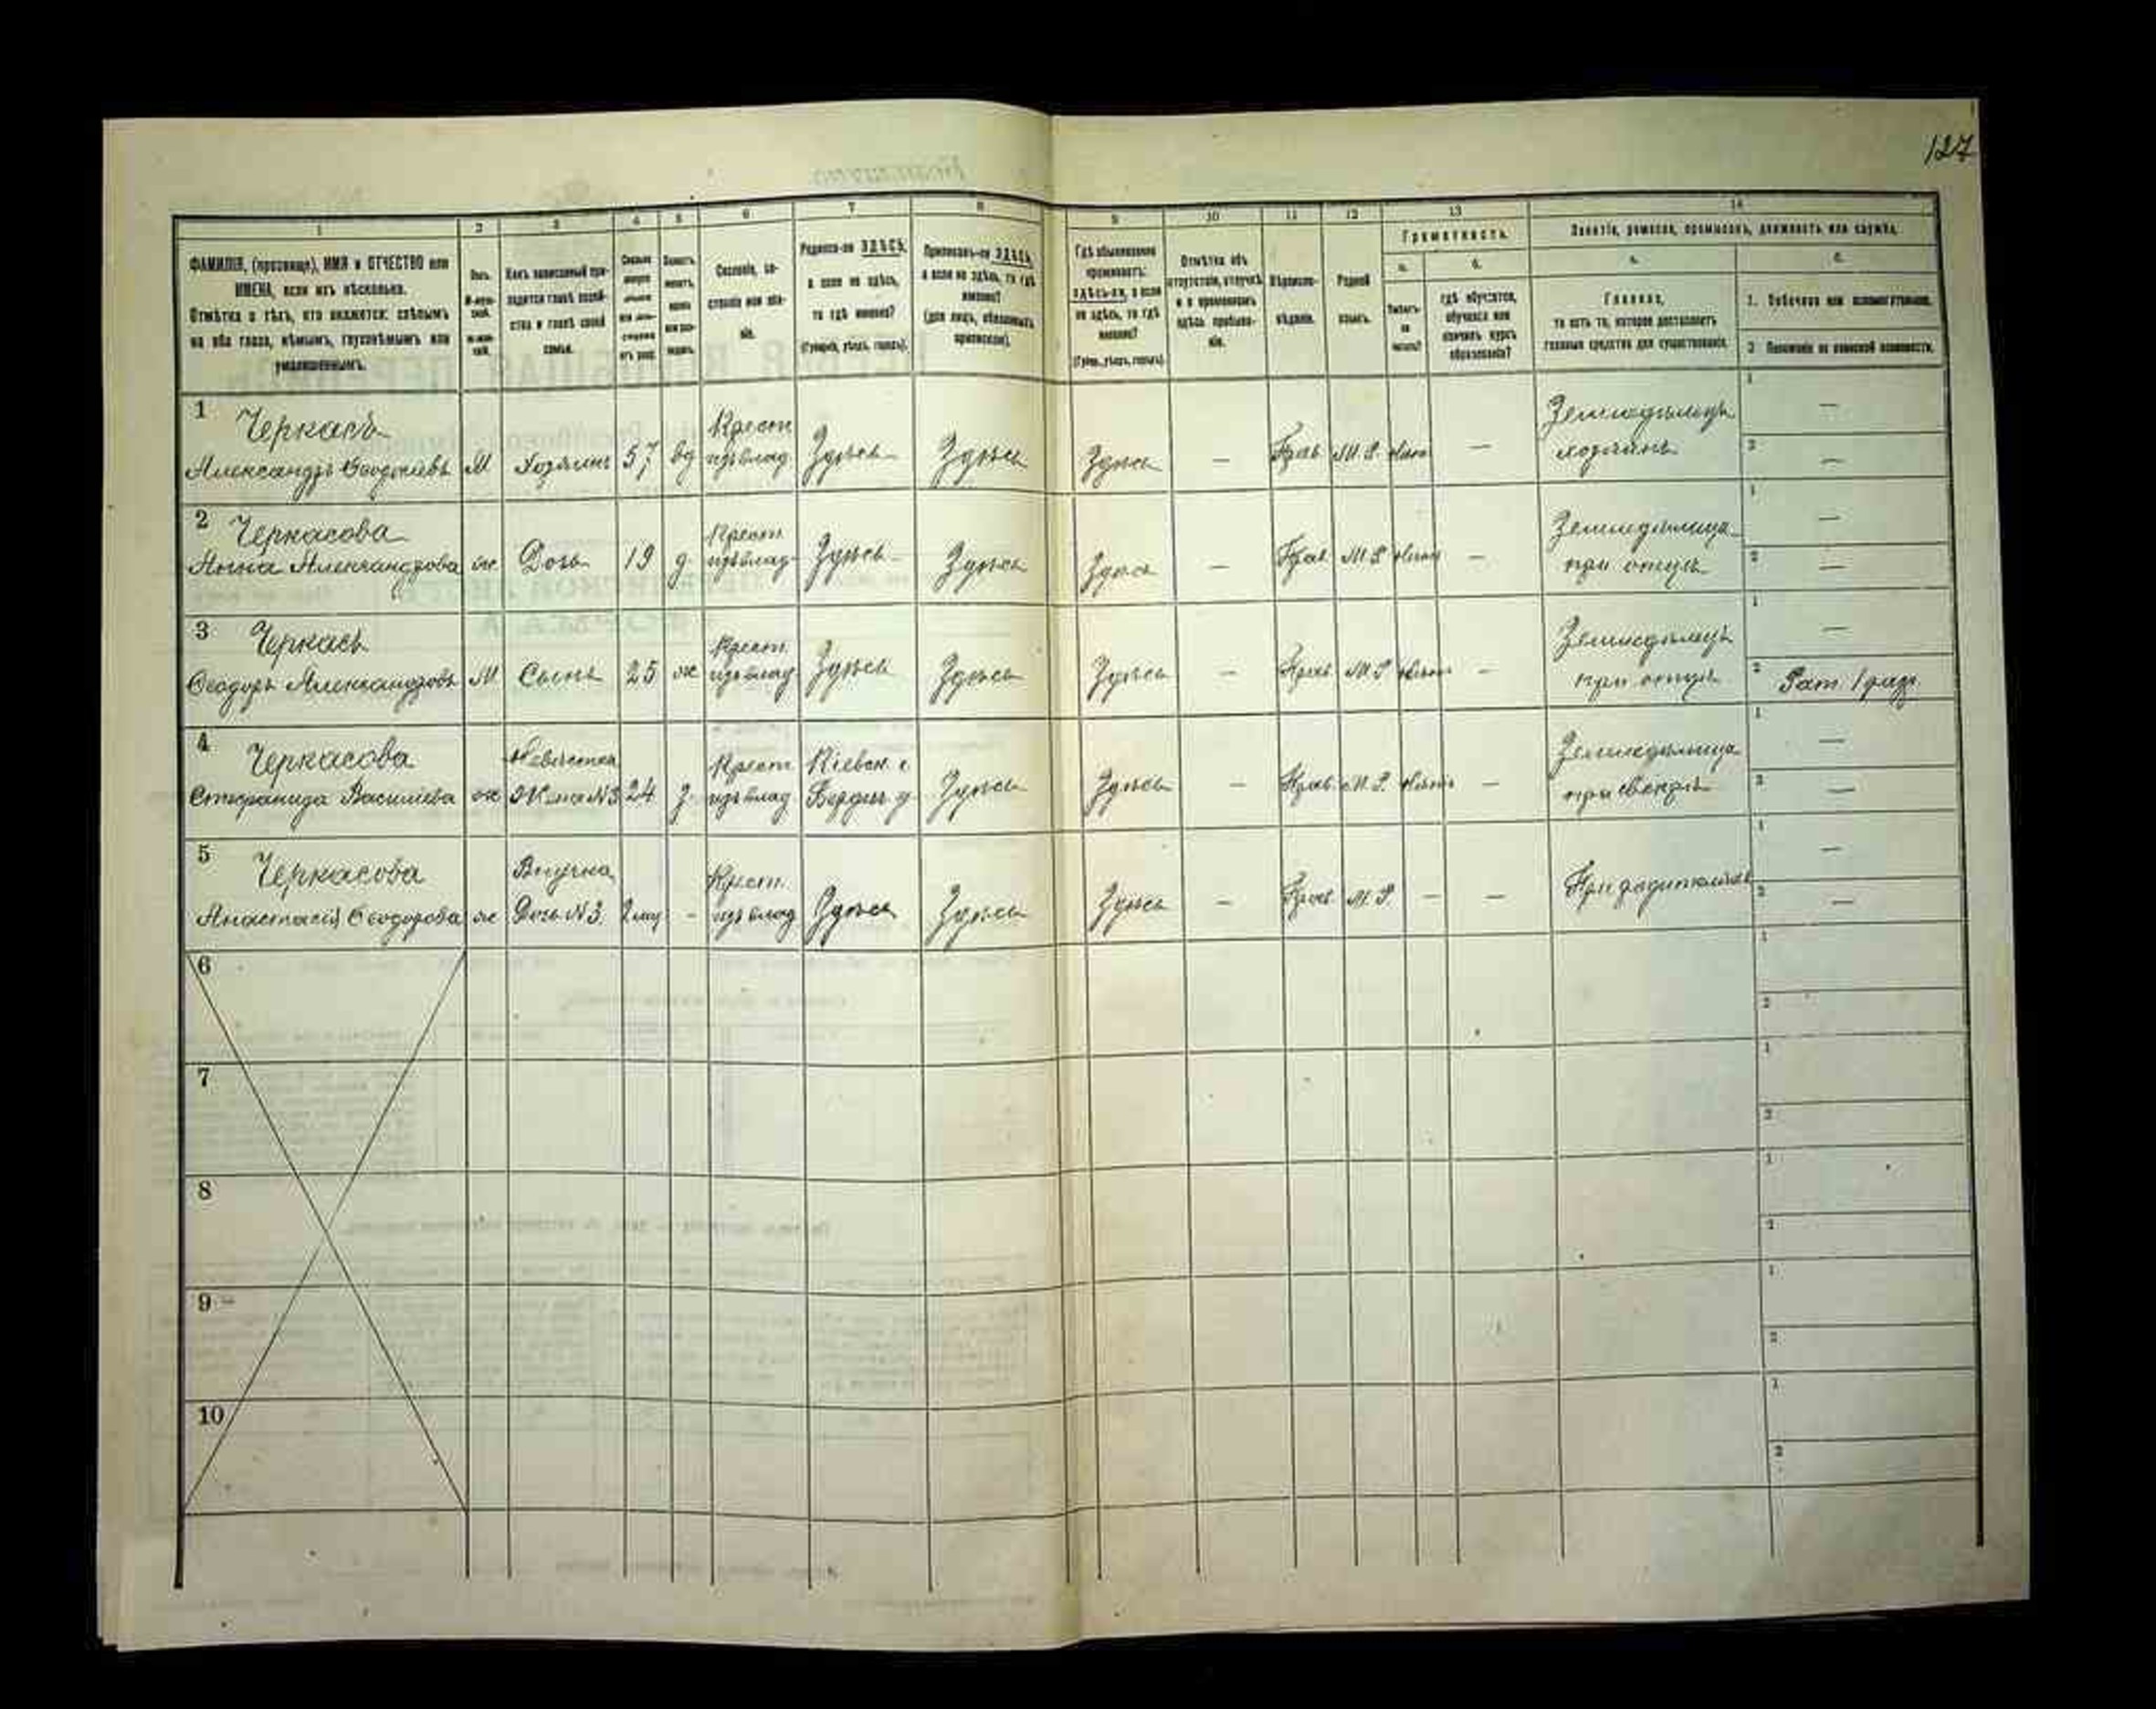 127
1 2 3 4 5 6 7 8 9 10 11 12 13 14
ФАМИЛІЯ, (прозвище), ИМЯ и ОТЧЕСТВО или
ИМЕНА, если ихъ нѣсколько.
Отмѣтка о тѣхъ, кто окажется: слѣпымъ
на оба глаза, нѣмымъ, глухонѣмымъ или
умалишеннымъ.
Полъ.
Какъ записанный при-
ходится главѣ хозяй-
ства и главѣ своей
семьи.
Сословіе, со-
стояніе или зва-
ніе.
Родился-ли ЗДѢСЬ,
а если не здѣсь,
то гдѣ именно?
(Губернія, уѣздъ, городъ).
Приписанъ-ли ЗДѢСЬ,
а если не здѣсь, то гдѣ
именно?
(для лицъ, обязанныхъ
припискою).
Гдѣ обыкновенно
проживаетъ:
ЗДѢСЬ-ли, а если
не здѣсь, то гдѣ
именно?
(Губерн., уѣздъ, городъ).
Отмѣтка объ
отсутствіи, отлучкѣ
и о временномъ
здѣсь пребыва-
ніи.
Вѣроиспо-
вѣданіе.
Родной
языкъ.
Грамотность.
а. б.
Умѣетъ-
ли
читать?
гдѣ обучается,
обучался или
кончилъ курсъ
образованія?
Занятіе, ремесло, промыселъ, должность или служба.
а. б.
Главное,
то есть то, которое доставляетъ
главныя средства для существованія.
1. Побочное или вспомогательное.
2 Положеніе по воинской повинности.
1 Черкасъ
Александръ Феодоріевъ М Хозяинъ 57 вд Крест. изъ влад. Здѣсь Здѣсь Здѣсь — Прав. М. Р. Нѣтъ —
Земледѣлецъ
хозяинъ
1 —
2 —
2 Черкасова
Анна Александрова ж Дочь 19 д. Крест. изъ влад. Здѣсь Здѣсь Здѣсь — Прав. М. Р. Нѣтъ —
Земледѣлица
при отцѣ
1 —
2 —
3 Черкасъ
Феодоръ Александровъ М Сынъ 25 ж Крест. изъ влад. Здѣсь Здѣсь Здѣсь — Прав. М. Р. Нѣтъ —
Земледѣлецъ
при отцѣ
1 —
2 Рат. 1 разр.
4 Черкасова
Стефанида Василіева ж Невѣстка Жена №3 24 з. Крест. изъ влад. Кіевск. г. Бердич. у. Здѣсь Здѣсь — Прав. М. Р. Нѣтъ —
Земледѣлица
при свекрѣ
1 —
2 —
5 Черкасова
Анастасія Феодорова ж Внучка Дочь №3 - Крест. изъ влад. Здѣсь Здѣсь Здѣсь — Прав. М. Р. — —
При родителяхъ
1 —
2 —
6 1
2
7 1
2
8 1
2
9 1
2
10 1
2